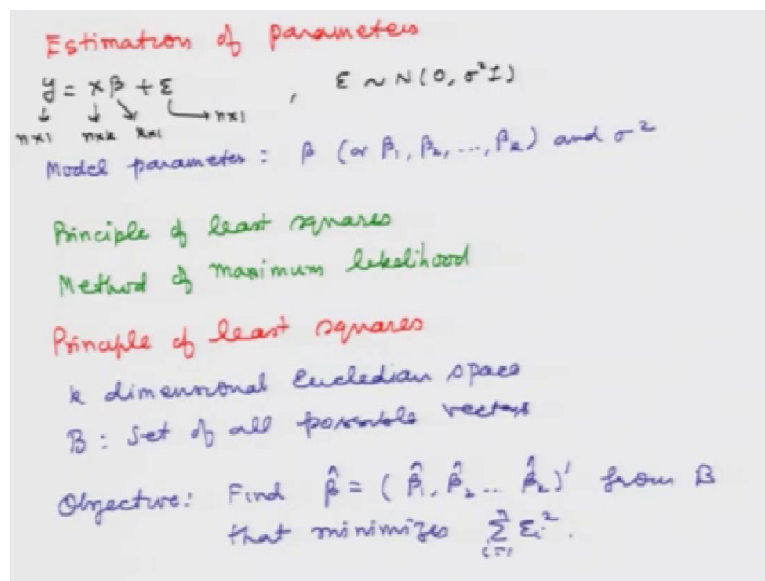 Estimation of parameters
y = xβ + ε , ε ~ N(0, σ²I)
n×1 n×k k×1 n×1
Model parameter : β (or β₁, β₂, ..., βₖ) and σ²
Principle of least squares
Method of maximum likelihood
Principle of least squares
k dimensional Eucledian space
B : Set of all possible vectors
Objective: Find β̂ = (β̂₁, β̂₂ .. β̂ₖ)' from B
that minimizes Σᵢ₌₁ⁿ εᵢ².